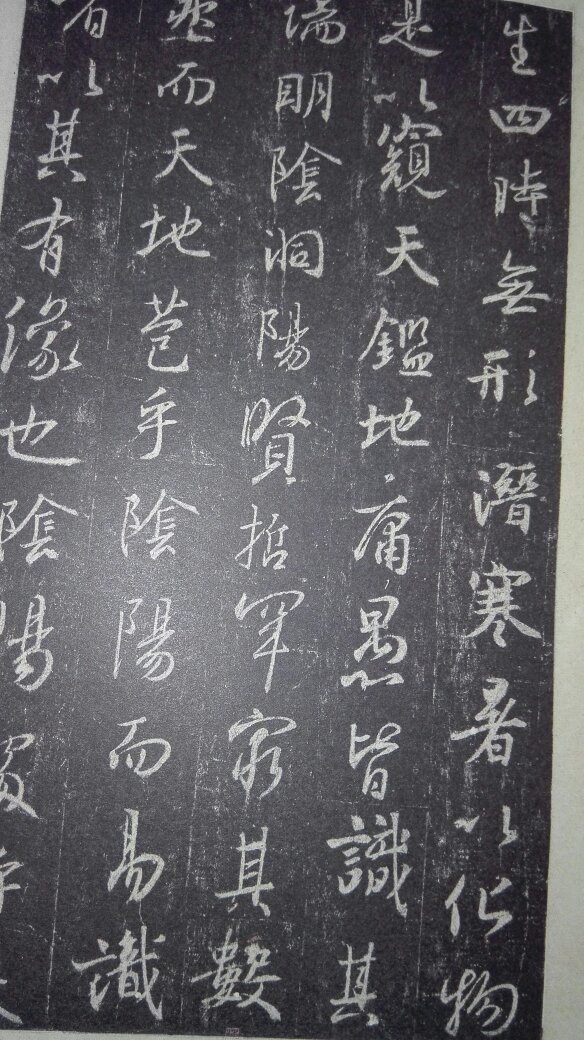 生四時無形潛寒暑以化物
是以窺天鑑地庸愚皆識其
端明陰洞陽賢哲罕窮其數
然而天地苞乎陰陽而易識
者以其有像也陰陽處乎天